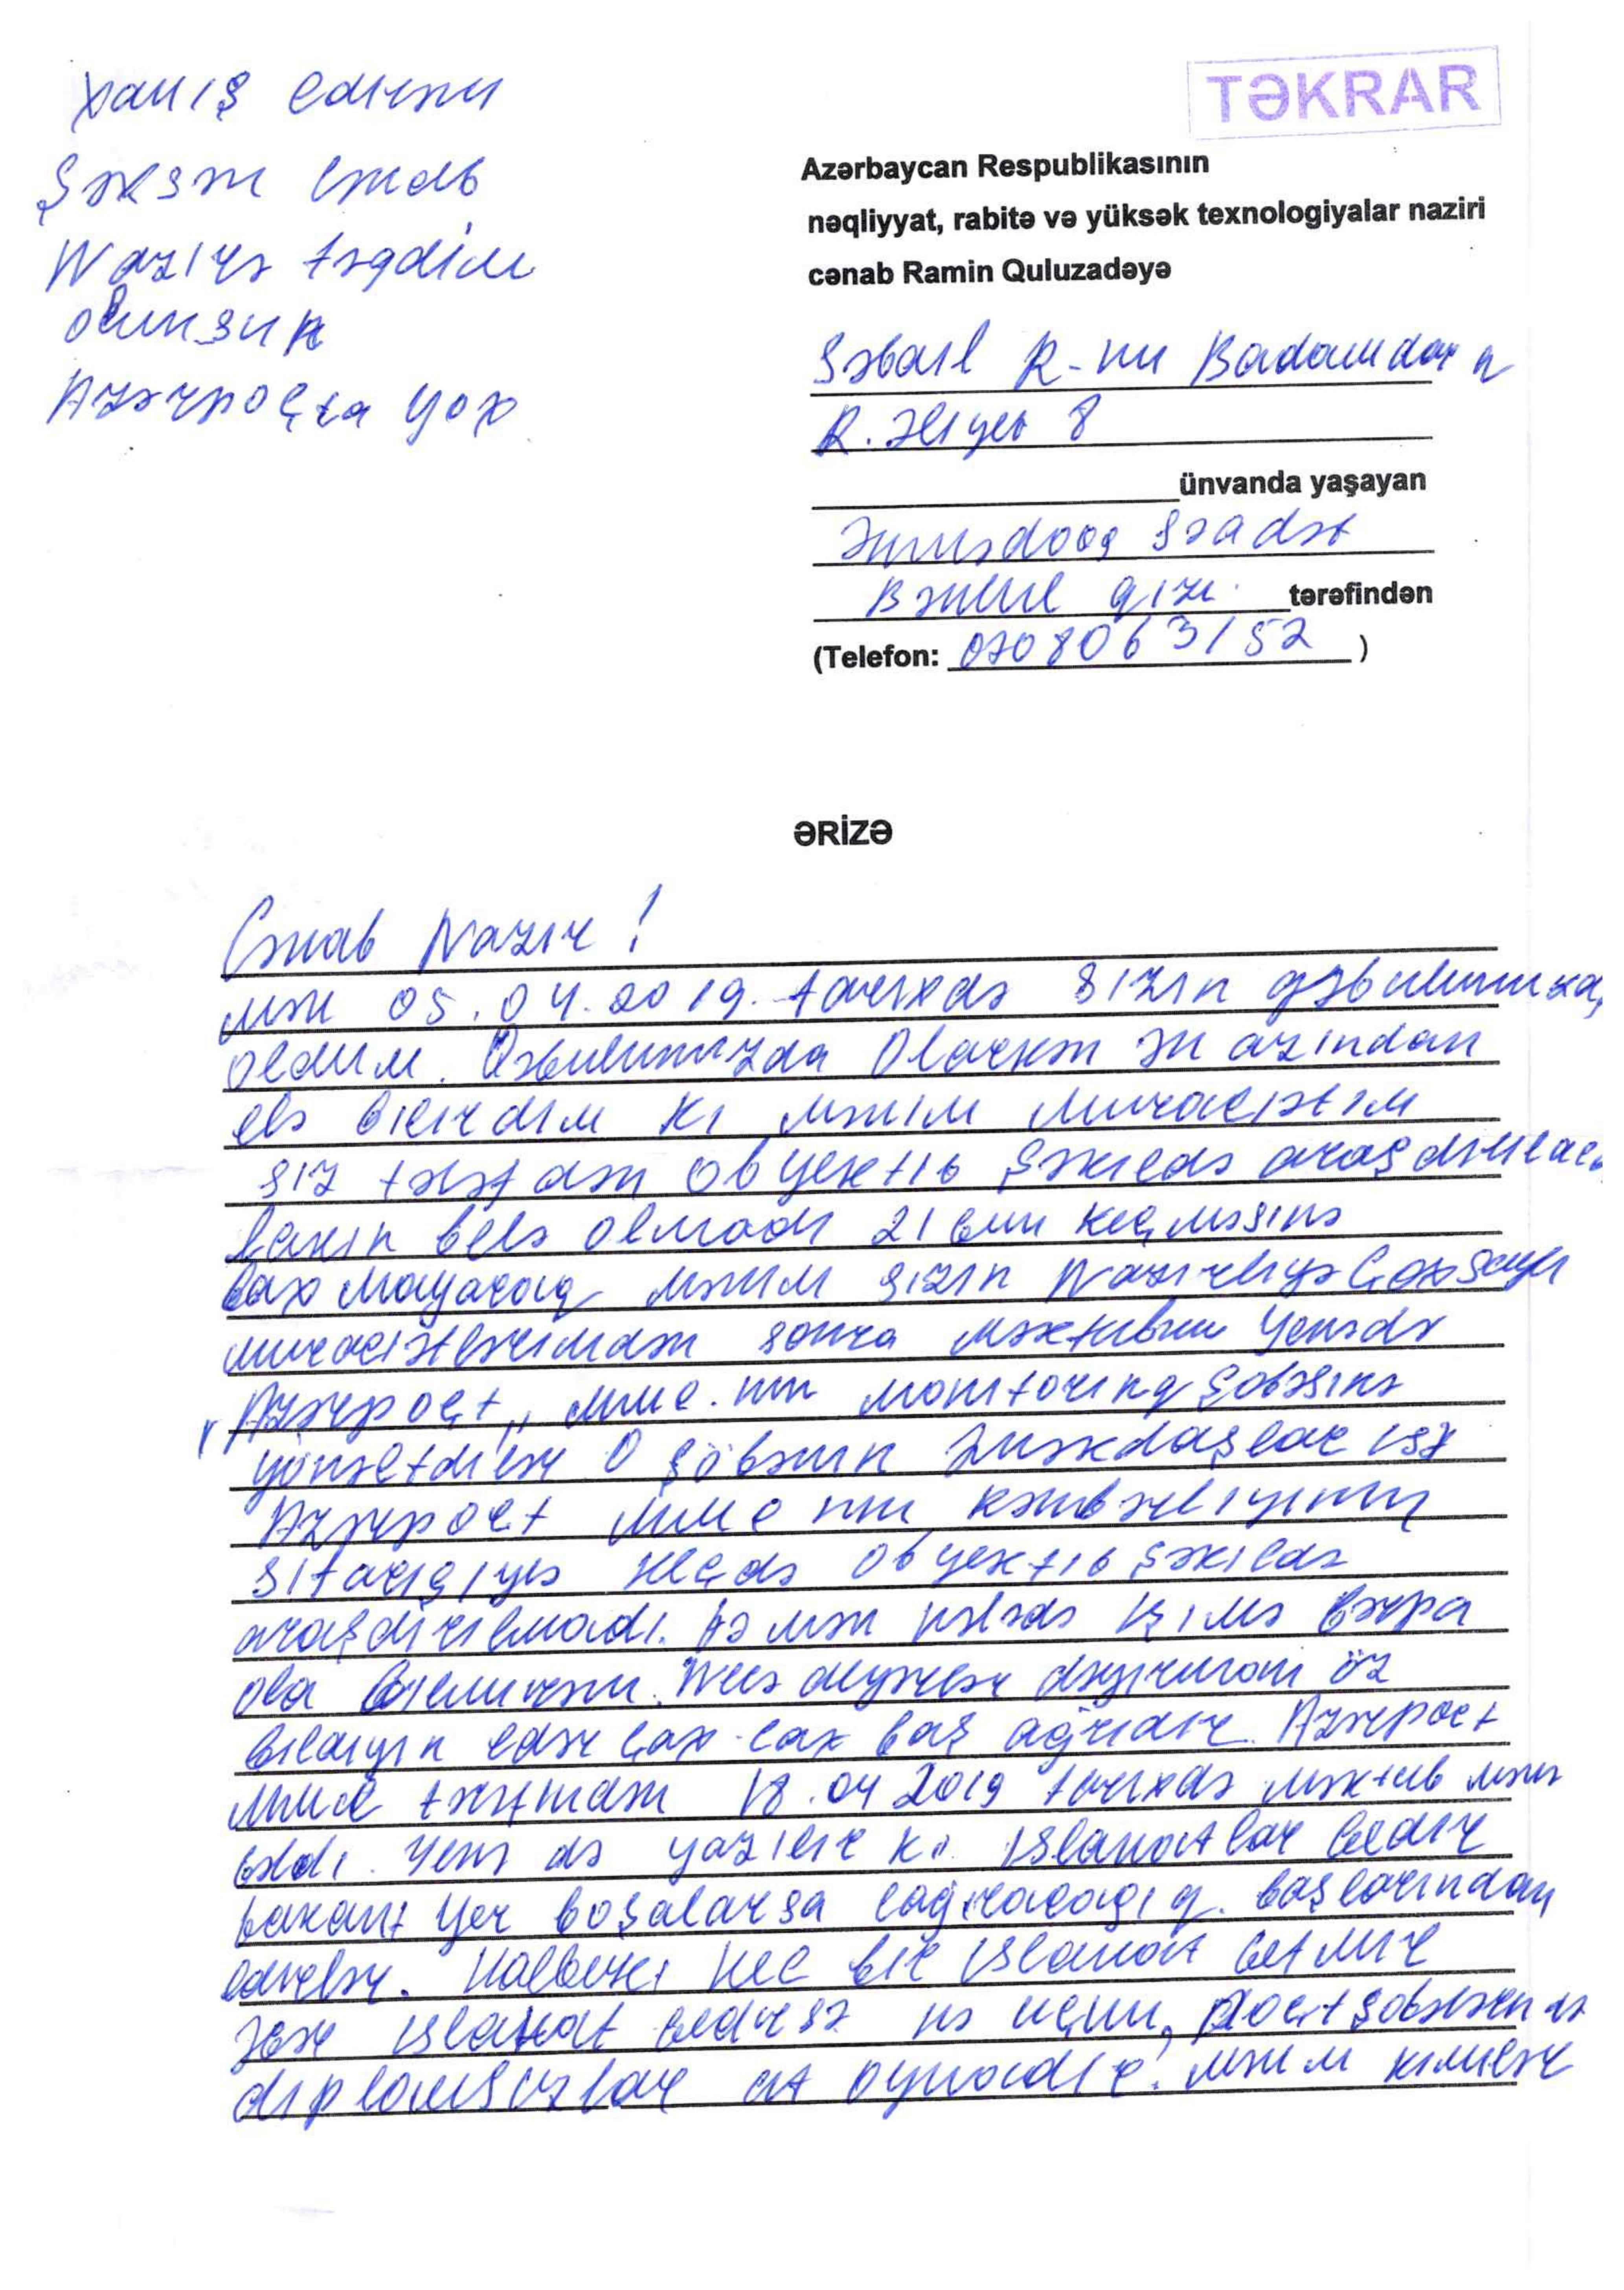 Xahiş edirəm
Şəxsən Cənab
Nazirə təqdim
olunsun
Azərpoçta yox
TƏKRAR
Azərbaycan Respublikasının
nəqliyyat, rabitə və yüksək texnologiyalar naziri
cənab Ramin Quluzadəyə
Səbail R-nu Badamdar q
R. Əliyev 8
ünvanda yaşayan
Səadət
qızı. tərəfindən
(Telefon: 0708063152 )
ƏRİZƏ
Cənab Nazir!
Mən 05.04.2019. tarixdə Sizin qəbulunuzda
oldum. Qəbulunuzda Olarkən ən azından
elə bilirdim ki mənim muraciətim
siz tərəfdən obyektiv şəkildə araşdırılac
Lakin belə olmadı 21 gun keçməsinə
baxmayaraq mənim sizin Nazirliyə Çoxsaylı
muraciətlərimdən sonra məktubum Yenədə
"Azərpoçt" MMC.nin monitoring Şobəsinə
yönəltdilər O şöbənin əməkdaşlar isə
Azərpoçt MMC nin rəhbərliyinin
sifarişiylə heçdə obyektiv şəkildə
araşdırılmadı. Və mən hələdə işimə bərpa
ola bilmirəm. Necə deyərlər dəyirman öz
bildiyin edər çax-çax baş ağrıdır. Azərpoçt
MMC tərəfindən 18.04 2019 tarixdə məktub mənə
gəldi. Yenə də yazılır ki. islahatlar gedir
vakant yer boşalarsa çağıracağıq. başlarından
edirlər. Halbuki heç bir islahat getmir
əgər islahat gedirsə nə uçun, poçt şobələrində
diplomsuzlar at oynadır! mənim kimilər